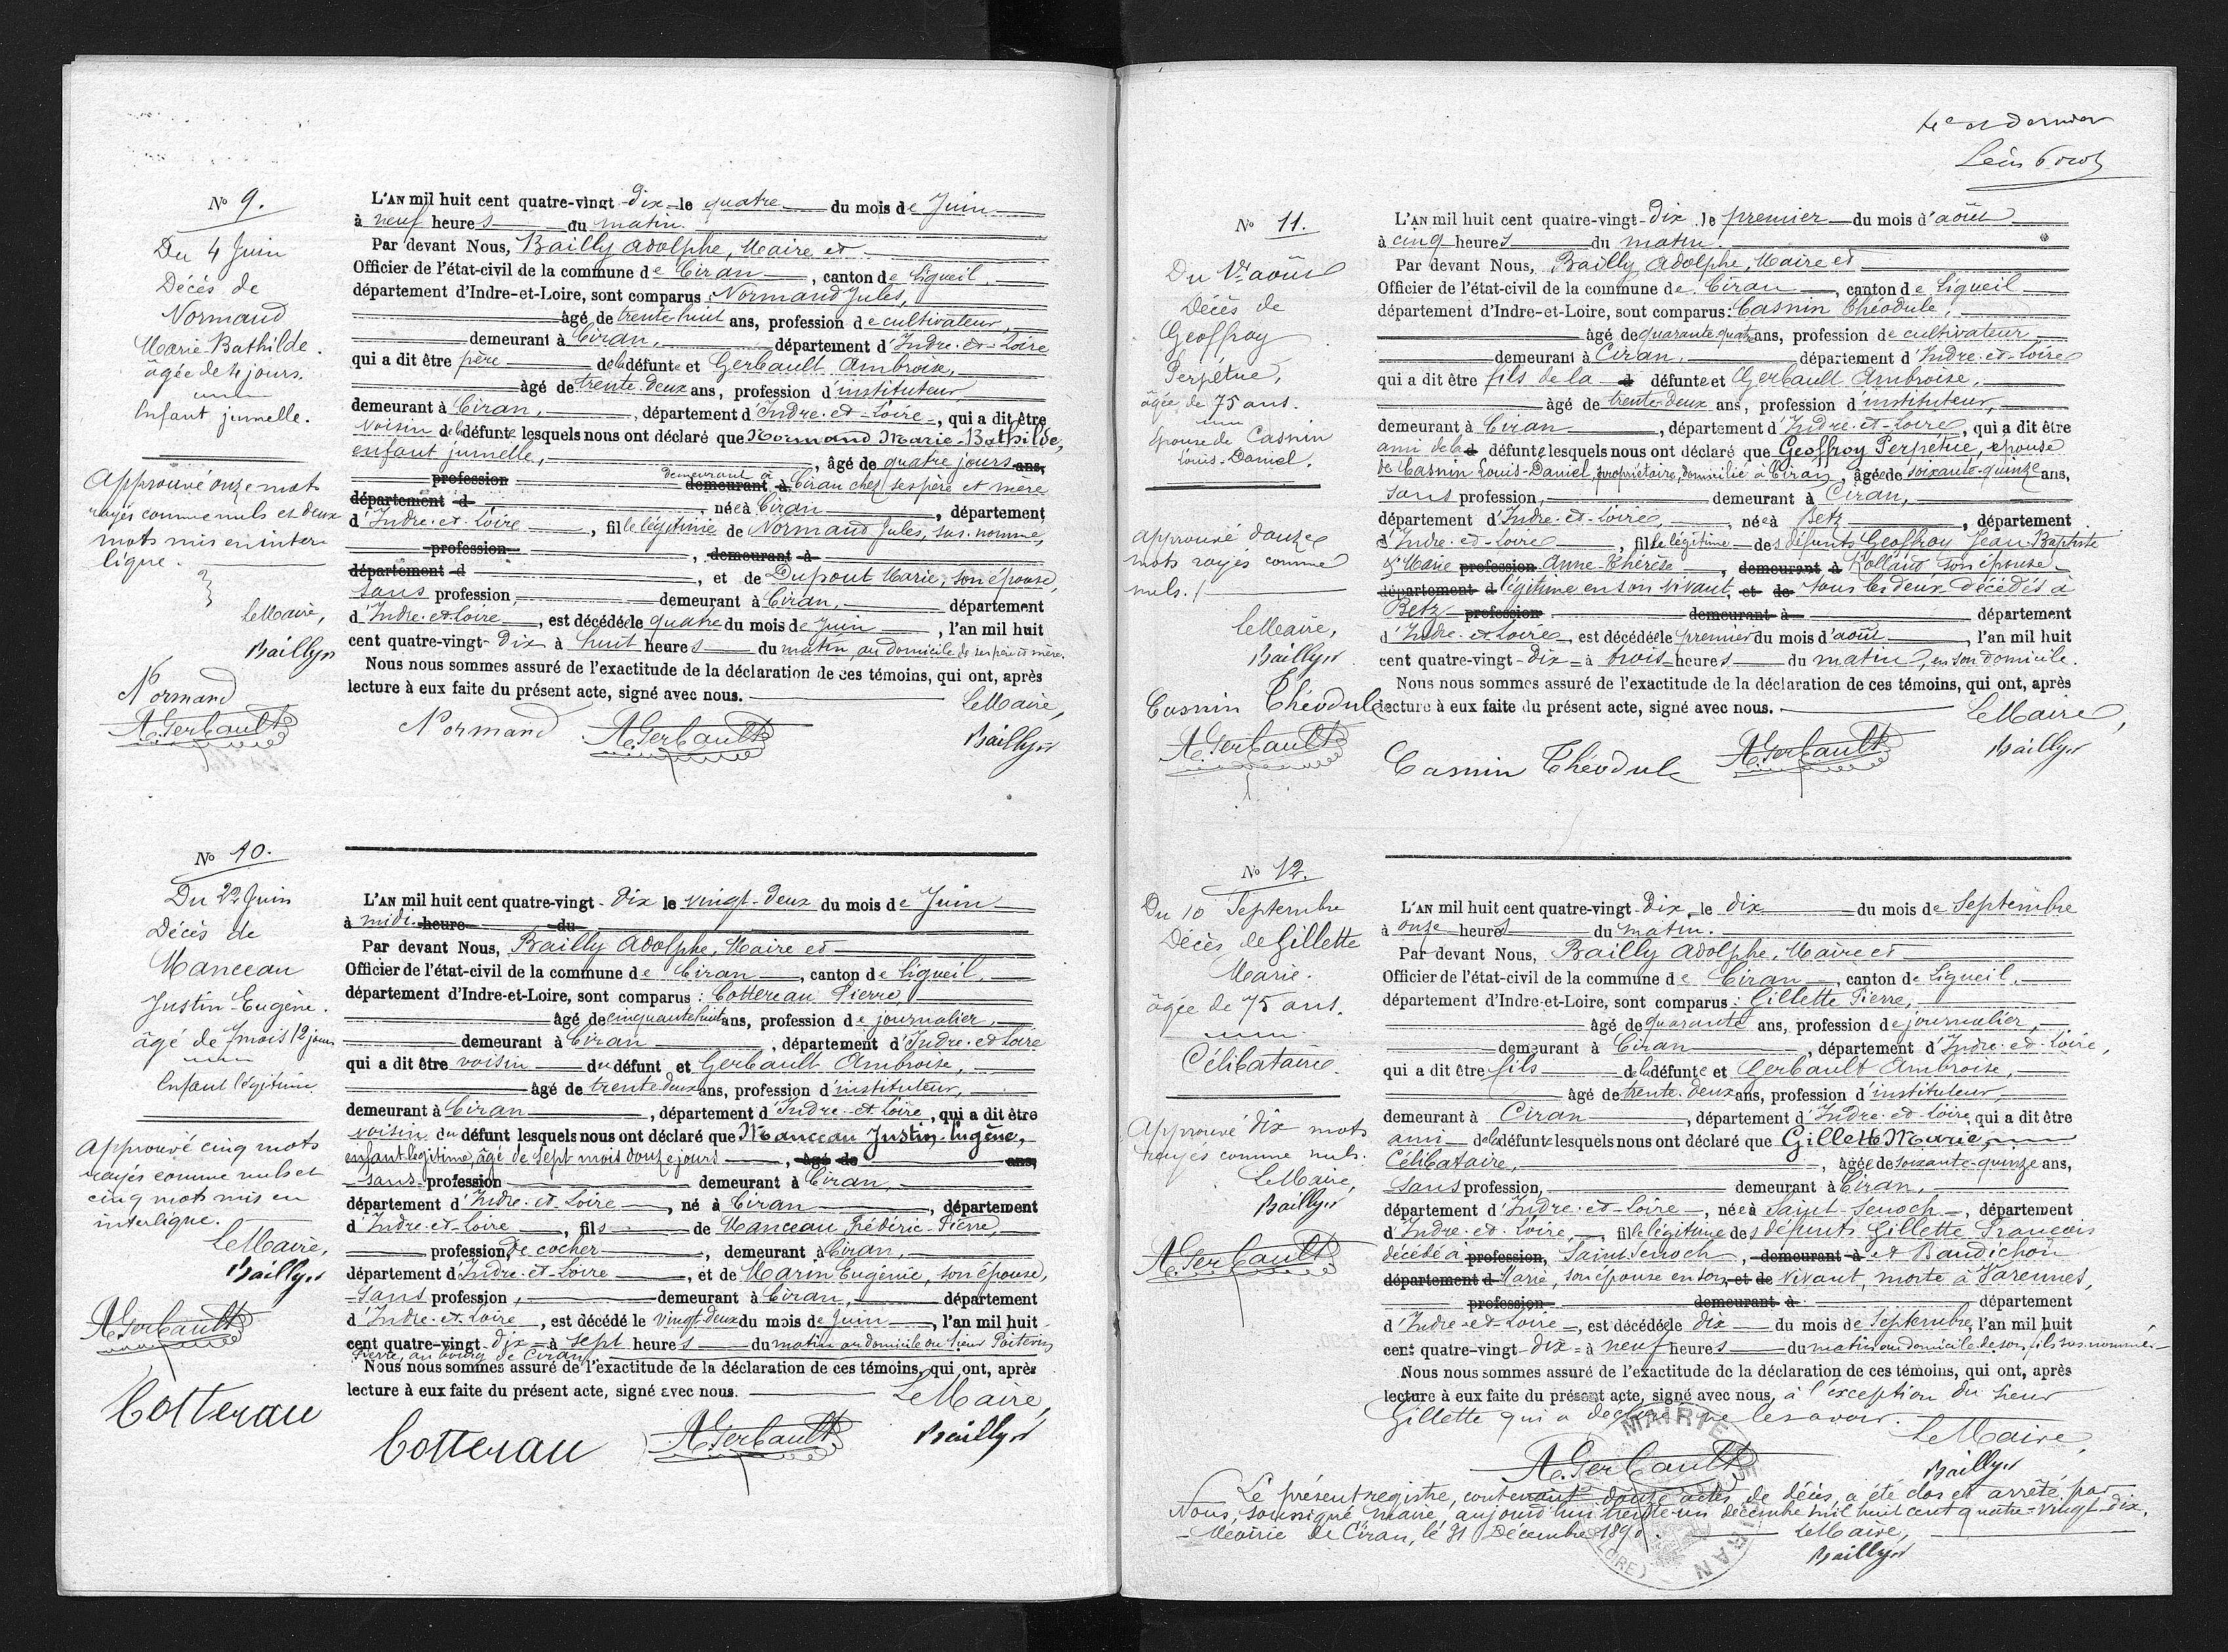 No 9.
Du 4 Juin
Décès de
Normand
Marie-Bathilde.
âgée de 4 jours.
Enfant jumelle.
Approuvé onze mots
rayés comme nuls et deux
mots mis en inter
ligne.
Le Maire,
Bailly
Normand
A. Gerbault
L'AN mil huit cent quatre-vingt-dix le quatre du mois de Juin
à neuf heures du matin.
Par devant Nous, Bailly Adolphe, Maire et
Officier de l'état-civil de la commune de Ciran, canton de Ligueil,
département d'Indre-et-Loire, sont comparus Normand Jules,
âgé de trente huit ans, profession de cultivateur,
demeurant à Ciran, département d'Indre-et-Loire
qui a dit être père de la défunte et Gerbault Ambroise,
âgé de trente-deux ans, profession d'instituteur
demeurant à Ciran, département d'Indre-et-Loire, qui a dit être
voisin de la défunte lesquels nous ont déclaré que Normand Marie-Bathilde,
enfant jumelle, âgé de quatre jours ans,
demeurant à
profession demeurant à Ciran chez ses père et mère
département d , née à Ciran, département
d'Indre-et-Loire, fille légitime de Normand Jules, sus-nommé,
profession , demeurant à
département d , et de Dupont Marie, son épouse,
sans profession, demeurant à Ciran, département
d'Indre-et-Loire, est décédée le quatre du mois de Juin, l'an mil huit
cent quatre-vingt-dix à huit heures du matin, au domicile de ses père et mère.
Nous nous sommes assuré de l'exactitude de la déclaration de ces témoins, qui ont, après
lecture à eux faite du présent acte, signé avec nous.
Le Maire,
Normand A. Gerbault Bailly
No 10.
Du 22 Juin
Décès de
Manceau
Justin-Eugène.
âgé de 7 mois 12 jours
Enfant légitime
Approuvé cinq mots
rayés comme nuls et
cinq mots mis en
interligne.
Le Maire,
Bailly
A. Gerbault
Cottereau
L'AN mil huit cent quatre-vingt-dix le vingt-deux du mois de Juin
à midi heure du
Par devant Nous, Bailly Adolphe, Maire et
Officier de l'état-civil de la commune de Ciran, canton de Ligueil,
département d'Indre-et-Loire, sont comparus : Cottereau Pierre
âgé de cinquante huit ans, profession de journalier,
demeurant à Ciran, département d'Indre-et-Loire
qui a dit être voisin du défunt et Gerbault Ambroise,
âgé de trente deux ans, profession d'instituteur,
demeurant à Ciran, département d'Indre-et-Loire, qui a dit être
voisin du défunt lesquels nous ont déclaré que Manceau Justin-Eugène,
enfant légitime, âgé de sept mois douze jours, âgé de ans,
sans profession demeurant à Ciran,
département d'Indre-et-Loire, né à Ciran, département
d'Indre-et-Loire, fils de Manceau Frédéric-Pierre,
profession, de cocher, demeurant à Ciran,
département d'Indre-et-Loire, et de Marin Eugénie, son épouse,
sans profession, demeurant à Ciran, département
d'Indre-et-Loire, est décédé le vingt-deux du mois de Juin, l'an mil huit
cent quatre-vingt-dix à sept heures du matin au domicile du sieur Poitevin
Pierre, au bourg de Ciran
Nous nous sommes assuré de l'exactitude de la déclaration de ces témoins, qui ont, après
lecture à eux faite du présent acte, signé avec nous.
Le Maire,
Cottereau A. Gerbault Bailly
4e et dernier
No 11.
Du 1er août
Décès de
Geoffroy
Perpétue,
âgée de 75 ans.
épouse de Casnin
Louis-Daniel.
Approuvé douze
mots rayés comme
nuls.
Le Maire,
Bailly
Casnin Théodule
A. Gerbault
L'AN mil huit cent quatre-vingt-dix le premier du mois d'août
à cinq heures du matin.
Par devant Nous, Bailly Adolphe, Maire et
Officier de l'état-civil de la commune de Ciran, canton de Ligueil
département d'Indre-et-Loire, sont comparus : Casnin Théodule,
âgé de quarante quatre ans, profession de cultivateur
demeurant à Ciran, département d'Indre-et-Loire
qui a dit être fils de la d défunte et Gerbault Ambroise,
âgé de trente-deux ans, profession d'instituteur,
demeurant à Ciran, département d'Indre-et-Loire, qui a dit être
ami de la d défunte lesquels nous ont déclaré que Geoffroy Perpétue, épouse
de Casnin Louis-Daniel, propriétaire, domicilié à Ciran, âgée de soixante-quinze ans,
sans profession, demeurant à Ciran,
département d'Indre-et-Loire, née à Betz, département
d'Indre-et-Loire, fille légitime des défunts Geoffroy Jean-Baptiste
& Marie profession Anne-Thérèse, demeurant à Rolland son épouse
département d légitime en son vivant, et de tous les deux décédés à
Betz profession demeurant à département
d'Indre-et-Loire, est décédée le premier du mois d'août, l'an mil huit
cent quatre-vingt-dix à trois heures du matin, en son domicile.
Nous nous sommes assuré de l'exactitude de la déclaration de ces témoins, qui ont, après
lecture à eux faite du présent acte, signé avec nous.
Le Maire,
Casnin Théodule A. Gerbault Bailly
No 12.
Du 10 Septembre
Décès de Gillette
Marie.
âgée de 75 ans.
Célibataire.
Approuvé dix mots
rayés comme nuls.
Le Maire,
Bailly
A. Gerbault
L'AN mil huit cent quatre-vingt-dix, le dix du mois de Septembre
à onze heures du matin.
Par devant Nous, Bailly Adolphe, Maire et
Officier de l'état-civil de la commune de Ciran, canton de Ligueil,
département d'Indre-et-Loire, sont comparus : Gillette Pierre,
âgé de quarante ans, profession de journalier,
demeurant à Ciran, département d'Indre-et-Loire,
qui a dit être fils de la défunte et Gerbault Ambroise,
âgé de trente-deux ans, profession d'instituteur,
demeurant à Ciran, département d'Indre-et-Loire, qui a dit être
ami de la défunte lesquels nous ont déclaré que Gillette Marie,
Célibataire, âgée de soixante-quinze ans,
sans profession, demeurant à Ciran,
département d'Indre-et-Loire, née à Saint-Senoch, département
d'Indre-et-Loire, fille légitime des défunts Gillette François
décédé à profession, Saint-Senoch, demeurant à et Baudichon
département d Marie, son épouse en son et de vivant, morte à Varennes,
profession demeurant à département
d'Indre-et-Loire, est décédée le dix du mois de Septembre, l'an mil huit
cent quatre-vingt-dix à neuf heures du matin au domicile de son fils sus-nommé.
Nous nous sommes assuré de l'exactitude de la déclaration de ces témoins, qui ont, après
lecture à eux faite du présent acte, signé avec nous, à l'exception du sieur
Gillette qui a déclaré ne le savoir.
Le Maire,
A. Gerbault Bailly
MAIRIE DE CIRAN
LOIRE)
Le présent registre, contenant douze actes de décès, a été clos et arrêté par
Nous, soussigné maire, aujourd'hui trente-un décembre mil huit cent quatre-vingt-dix.
Mairie de Ciran, le 31 Décembre 1890.
Le Maire,
Bailly